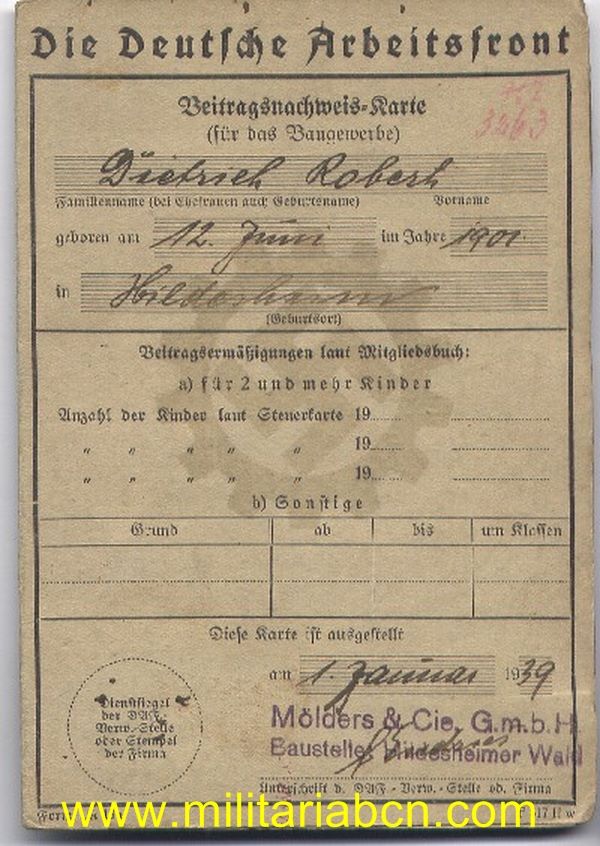 Die Deutsche Arbeitsfront
Beitragsnachweis-Karte
(für das Baugewerbe)
3263
Dietrich Robert
Familienname (bei Ehefrauen auch Geburtsname) Vorname
geboren am 12. Juni im Jahre 1901
in Hildesheim
(Geburtsort)
Beitragsermäßigungen laut Mitgliedsbuch:
a) für 2 und mehr Kinder
Anzahl der Kinder laut Steuerkarte 19
" " " " " 19
" " " " " 19
b) Sonstige
Grund ab bis um Klassen
Diese Karte ist ausgestellt
am 1. Januar 1939
Dienstsiegel
der DAF.
Verw.-Stelle
oder Stempel
der Firma
Mölders & Cie. G.m.b.H
Baustelle Hildesheimer Wald
Unterschrift d. DAF - Verw. - Stelle od. Firma
www.militariabcn.com